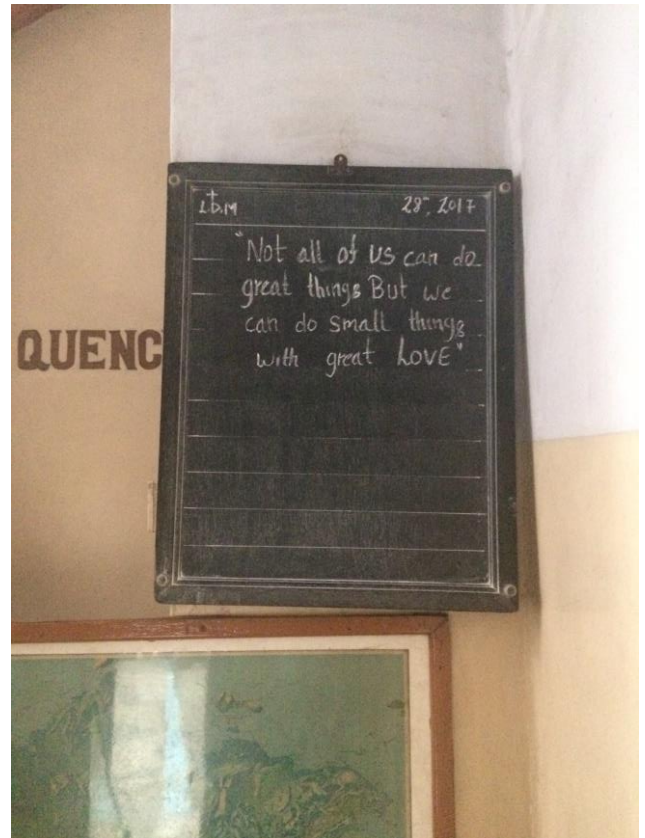 L.D.M 28, 2017
"Not all of us can do
great things But we
can do small things
with great LOVE"
QUENC